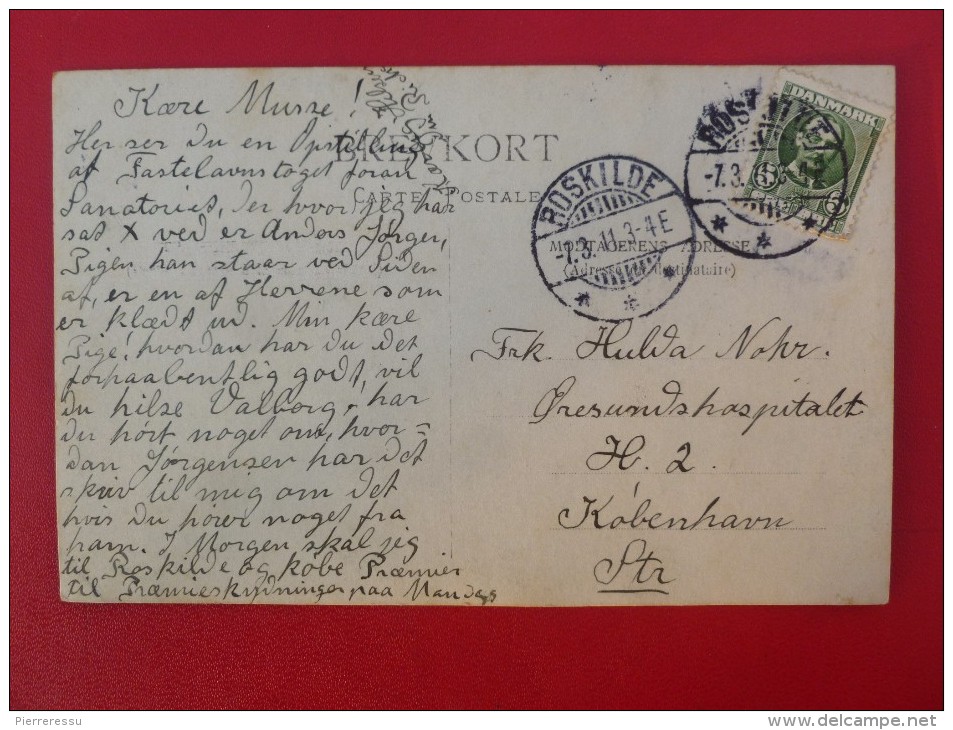 Kære Musse!
Her ser du en Opstilling
af Fastelavnstoget foran
Sanatoriet, der hvor jeg har
sat X ved er Anders Jørgen,
Pigen han staar ved Siden
af, er en af Herrene som
er klædt ud. Min kære
Pige! hvordan har du det
forhaabentlig godt, vil
du hilse Valborg, har
du hørt noget om, hvor=
dan Jørgensen har det
skriv til mig om det
hvis Du hører noget fra
ham. I Morgen skal jeg
til Roskilde og købe Præmier
til Præmieskydningen paa Mandag
BREVKORT
CARTE POSTALE
MODTAGERENS ADRESSE
(Adresse du destinataire)
ROSKILDE
-7.3.11.3-4E
ROSKILDE
-7.3.
DANMARK
5
Frk. Hulda Nohr.
Øresundshospitalet
H. 2.
København
Str
Pierreressu
delcampe.net